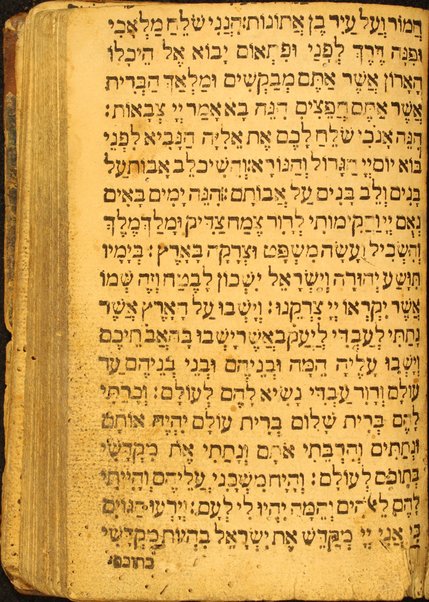 חֲמוֹר וְעַל עַיִר בֶּן אֲתוֹנוֹת׃ הִנְנִי שֹׁלֵחַ מַלְאָכִי
וּפִנָּה דֶרֶךְ לְפָנַי וּפִתְאוֹם יָבוֹא אֶל הֵיכָלוֹ
הָאָדוֹן אֲשֶׁר אַתֶּם מְבַקְשִׁים וּמַלְאַךְ הַבְּרִית
אֲשֶׁר אַתֶּם חֲפֵצִים הִנֵּה בָא אָמַר יְיָ צְבָאוֹת׃
הִנֵּה אָנֹכִי שֹׁלֵחַ לָכֶם אֶת אֵלִיָּה הַנָּבִיא לִפְנֵי
בּוֹא יוֹם יְיָ הַגָּדוֹל וְהַנּוֹרָא׃ וְהֵשִׁיב לֵב אָבוֹת עַל
בָּנִים וְלֵב בָּנִים עַל אֲבוֹתָם׃ הִנֵּה יָמִים בָּאִים
נְאֻם יְיָ וַהֲקִימוֹתִי לְדָוִד צֶמַח צַדִּיק וּמָלַךְ מֶלֶךְ
וְהִשְׂכִּיל וְעָשָׂה מִשְׁפָּט וּצְדָקָה בָּאָרֶץ׃ בְּיָמָיו
תִּוָּשַׁע יְהוּדָה וְיִשְׂרָאֵל יִשְׁכּוֹן לָבֶטַח וְזֶה שְּׁמוֹ
אֲשֶׁר יִקְרְאוֹ יְיָ צִדְקֵנוּ׃ וְיָשְׁבוּ עַל הָאָרֶץ אֲשֶׁר
נָתַתִּי לְעַבְדִּי לְיַעֲקֹב אֲשֶׁר יָשְׁבוּ בָהּ אֲבֹתֵיכֶם
וְיָשְׁבוּ עָלֶיהָ הֵמָּה וּבְנֵיהֶם וּבְנֵי בְנֵיהֶם עַד
עוֹלָם וְדָוִד עַבְדִּי נָשִׂיא לָהֶם לְעוֹלָם׃ וְכָרַתִּי
לָהֶם בְּרִית שָׁלוֹם בְּרִית עוֹלָם יִהְיֶה אוֹתָם
וּנְתַתִּים וְהִרְבֵּתִי אֹתָם וְנָתַתִּי אֶת מִקְדָּשִׁי
בְּתוֹכָם לְעוֹלָם׃ וְהָיָה מִשְׁכָּנִי עֲלֵיהֶם וְהָיִיתִי
לָהֶם לֵאלֹהִים וְהֵמָּה יִהְיוּ לִי לְעָם׃ וְיָדְעוּ הַגּוֹיִם
כִּי אֲנִי יְיָ מְקַדֵּשׁ אֶת יִשְׂרָאֵל בִּהְיוֹת מִקְדָּשִׁי
בתוכם